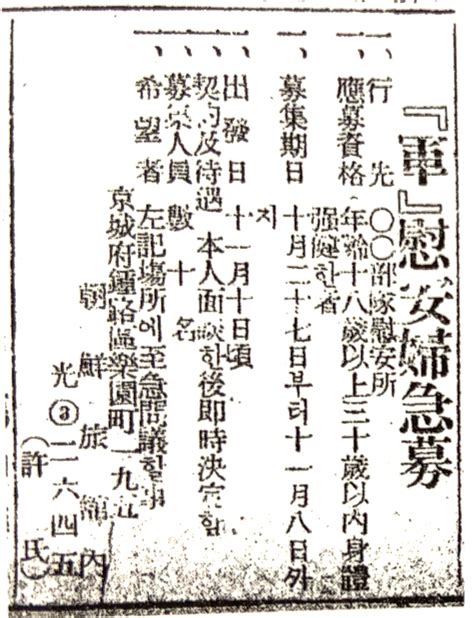 『軍』慰安婦急募
一、行 先 〇〇部隊慰安所
一、應募資格 年齡十八歲以上三十歲以內身體
强健한者
一、募集期日 十月二十七日부터十一月八日外
지
一、出發日 十一月十日頃
一、契約及待遇 本人面談한後卽時決定함
一、募集人員 數十名
一、希望者 左記場所에至急問議할事
京城府鍾路區樂園町一九五
朝鮮旅館內
光③二六四五
(許 氏)